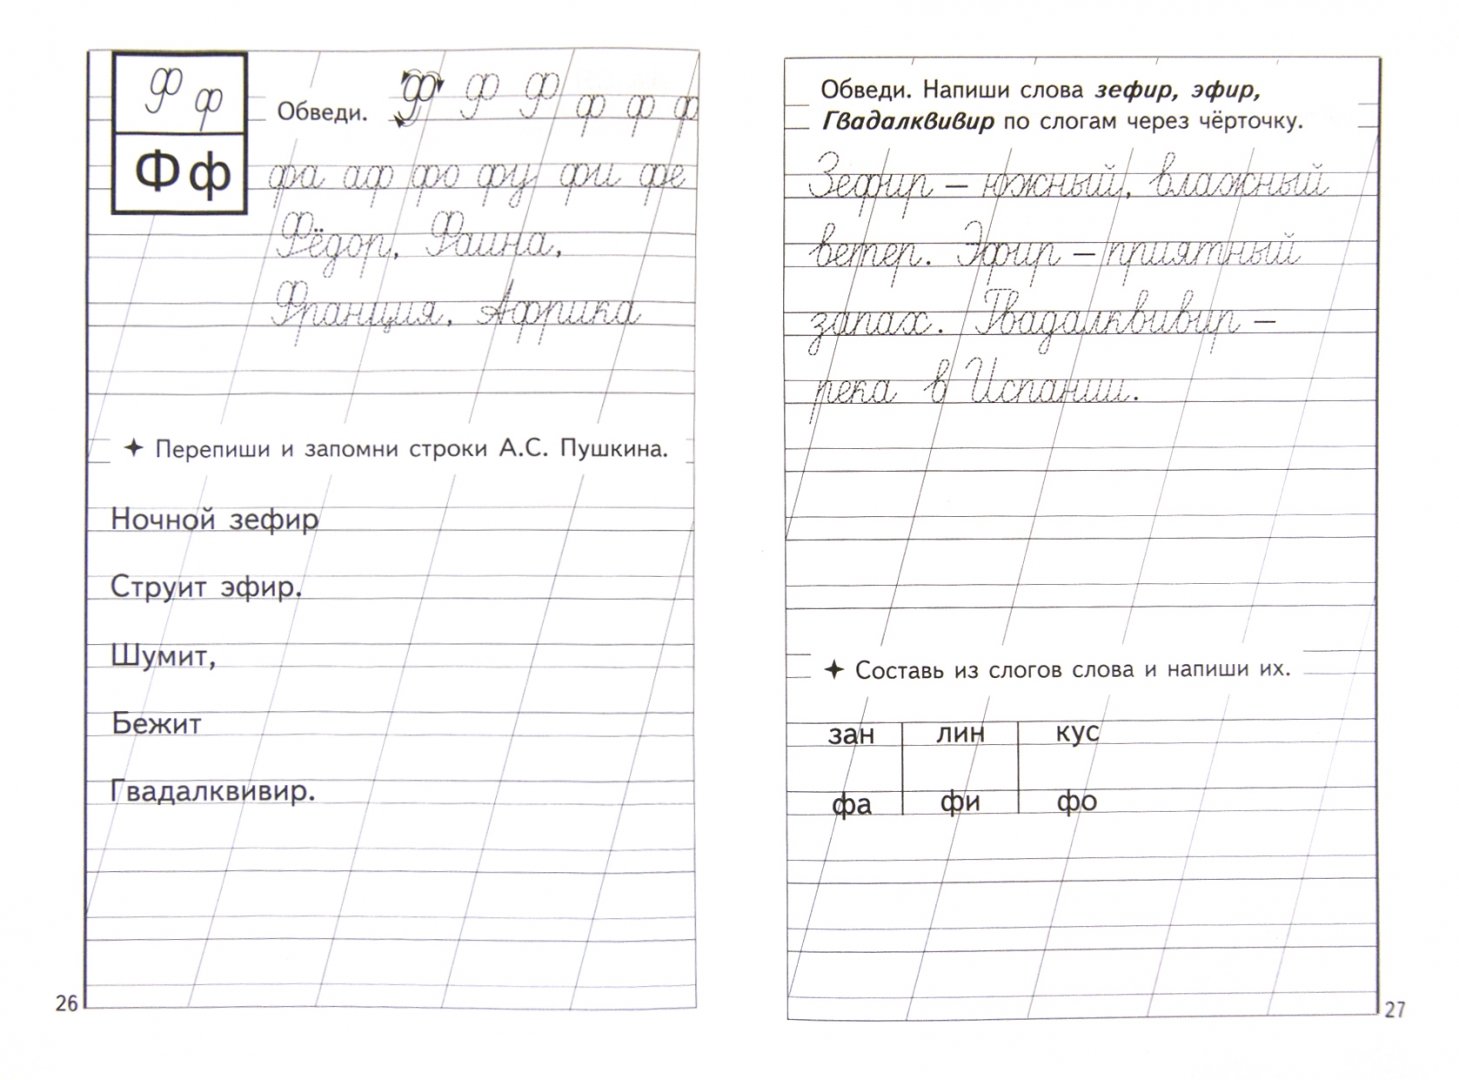 Ф ф
Ф ф
Обведи. Ф Ф Ф ф ф ф
фа аф фо фу фи фе
Фёдор, Фаина,
Франция, Африка
Перепиши и запомни строки А.С. Пушкина.
Ночной зефир
Струит эфир.
Шумит,
Бежит
Гвадалквивир.
26
Обведи. Напиши слова зефир, эфир,
Гвадалквивир по слогам через чёрточку.
Зефир – южный, влажный
ветер. Эфир – приятный
запах. Гвадалквивир –
река в Испании.
Составь из слогов слова и напиши их.
зан лин кус
фа фи фо
27